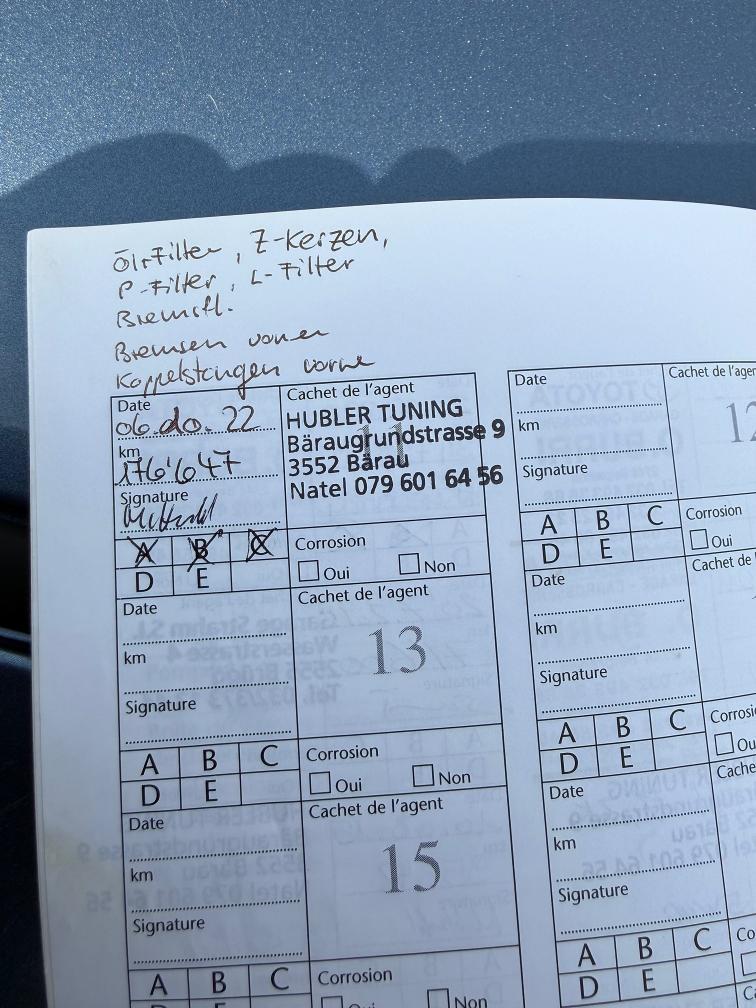 Öl+Filter, Z-Kerzen,
P-Filter, L-Filter
Bremsfl.
Bremsen vorne
Koppelstangen vorne
Date
06.10.22
km
176'647
Signature
A B C
D E
Cachet de l'agent
11
HUBLER TUNING
Bäraugrundstrasse 9
3552 Bärau
Natel 079 601 64 56
Corrosion
Oui Non
Date
km
Signature
A B C
D E
Cachet de l'agent
13
Corrosion
Oui Non
Date
km
Signature
A B C
Cachet de l'agent
15
Corrosion
Oui Non
Date
km
Signature
A B C
D E
Cachet de l'agen
12
Corrosion
Oui
Date
km
Signature
A B C
D E
Cachet de
Corrosio
Ou
Date
km
Signature
A B C
D E
Cache
Co